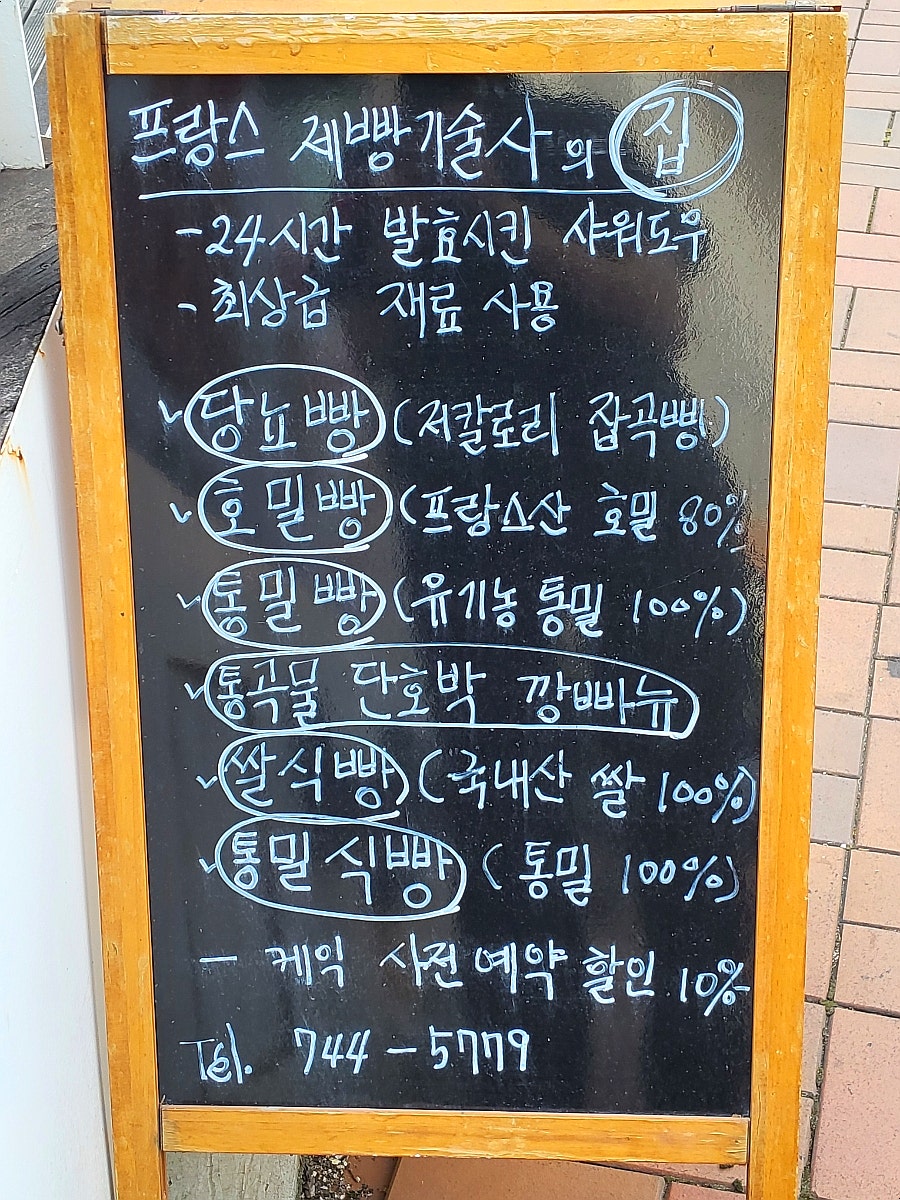 프랑스 제빵기술사의 집
- 24시간 발효시킨 샤워도우
- 최상급 재료 사용
✓ 당뇨빵 (저칼로리 잡곡빵)
✓ 호밀빵 (프랑스산 호밀 80%
✓ 통밀빵 (유기농 통밀 100%)
✓ 통곡물 단호박 깡빠뉴
✓ 쌀식빵 (국내산 쌀 100%)
✓ 통밀식빵 (통밀 100%)
- 케익 사전예약 할인 10%
Tel. 744-5779